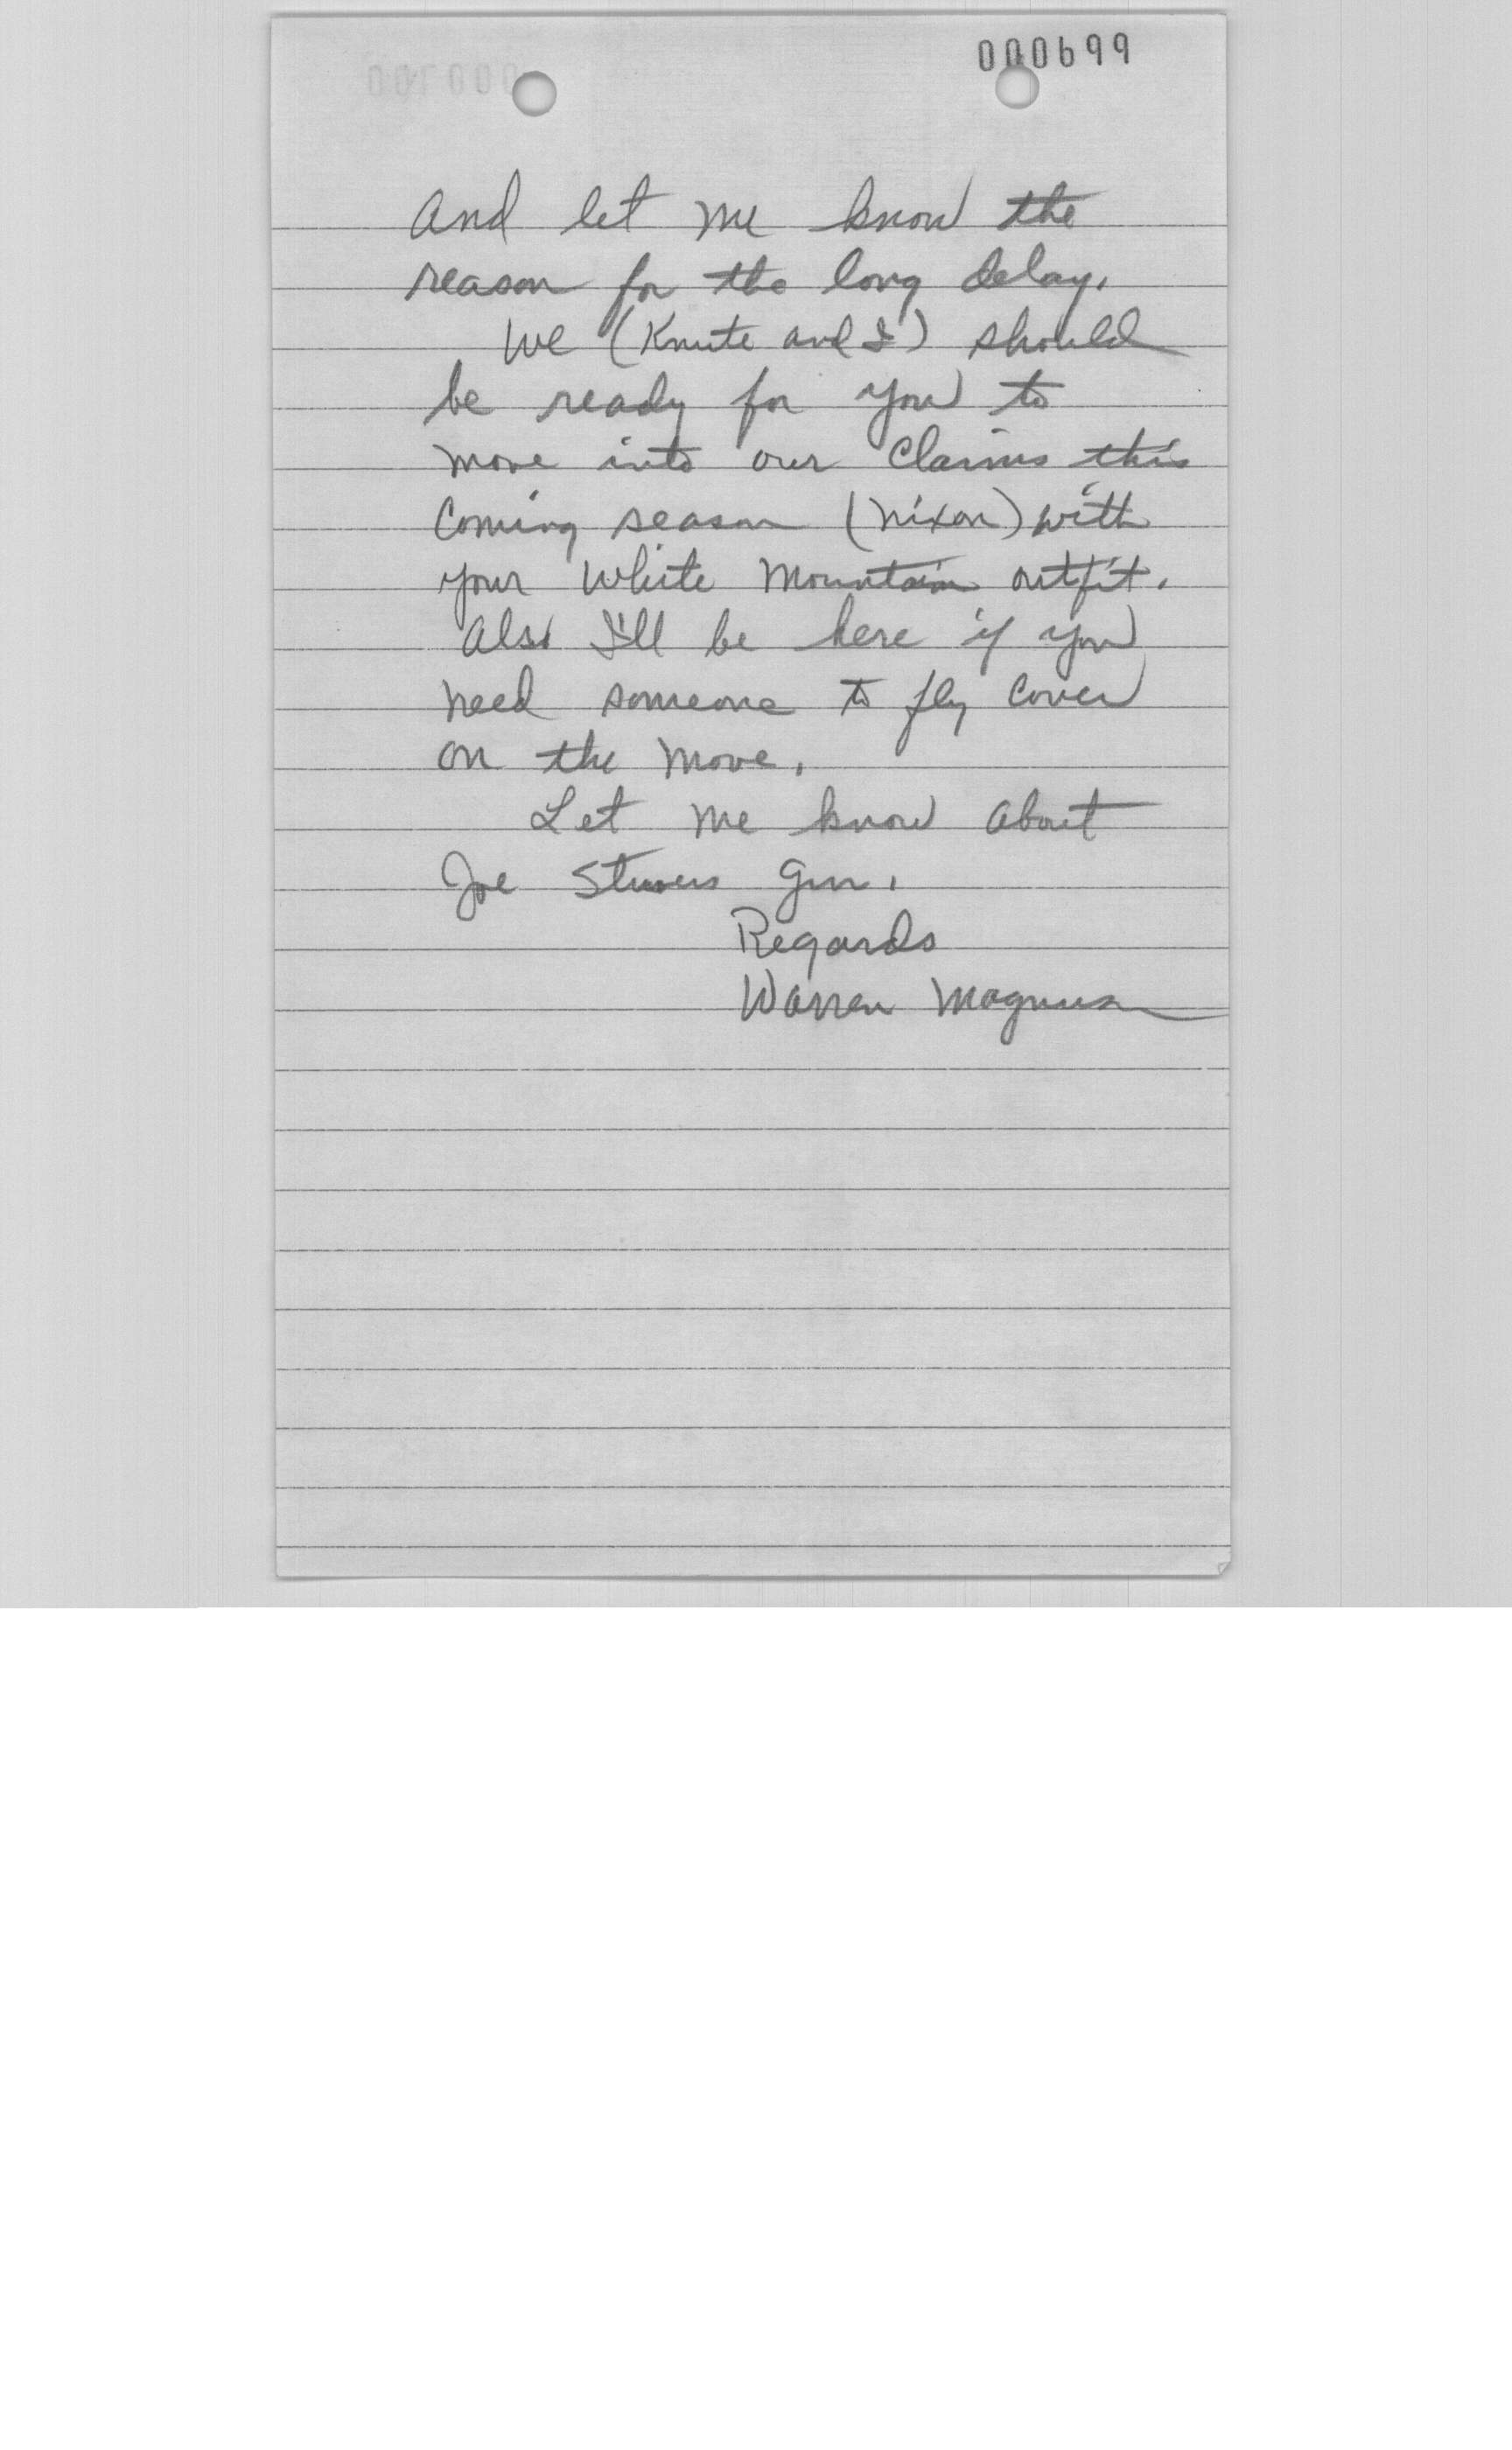 000699
And let me know the
reason for the long delay.
We (Knute and I) should
be ready for you to
move into our claims this
coming season (Nixon) with
your White Mountain outfit.
Also I'll be here if you
need someone to fly cover
on the move.
Let me know about
Joe gun.
Regards
Warren Magnuson